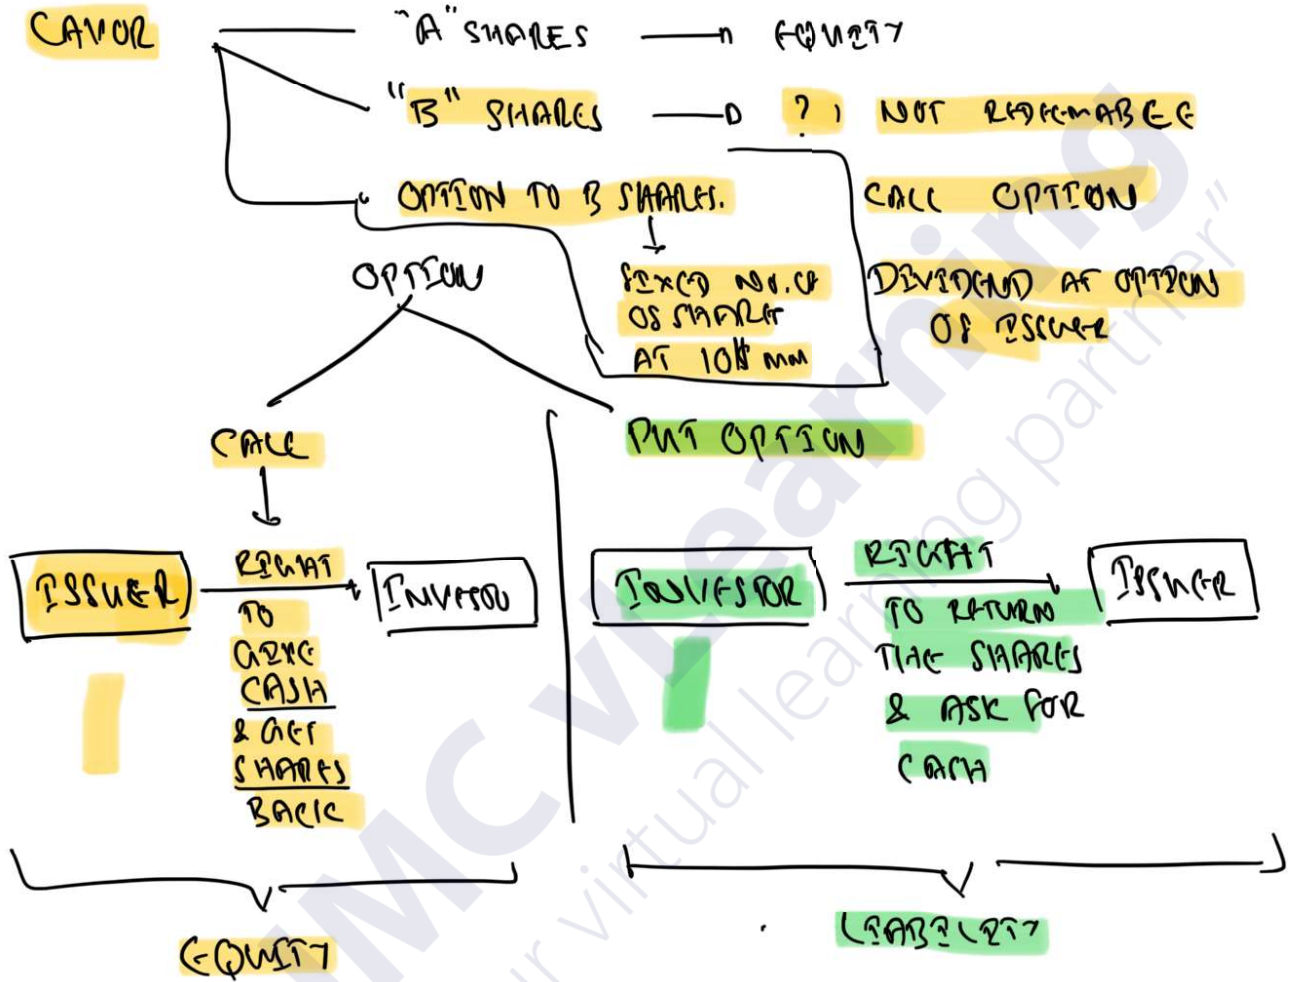 CAVOR
"A" SHARES EQUITY
"B" SHARES ? NOT REDEEMABLE
OPTION TO B SHARES. CALL OPTION
OPTION
FIXED NO. OF
OF SHARES
AT 10$ mm
DIVIDEND AT OPTION
OF ISSUER
CALL
PUT OPTION
ISSUER
RIGHT
TO
GIVE
CASH
& GET
SHARES
BACK
INVESTOR
INVESTOR
RIGHT
TO RETURN
THE SHARES
& ASK FOR
CASH
ISSUER
EQUITY
LIABILITY
MC vLearning
ur virtual learning partner"